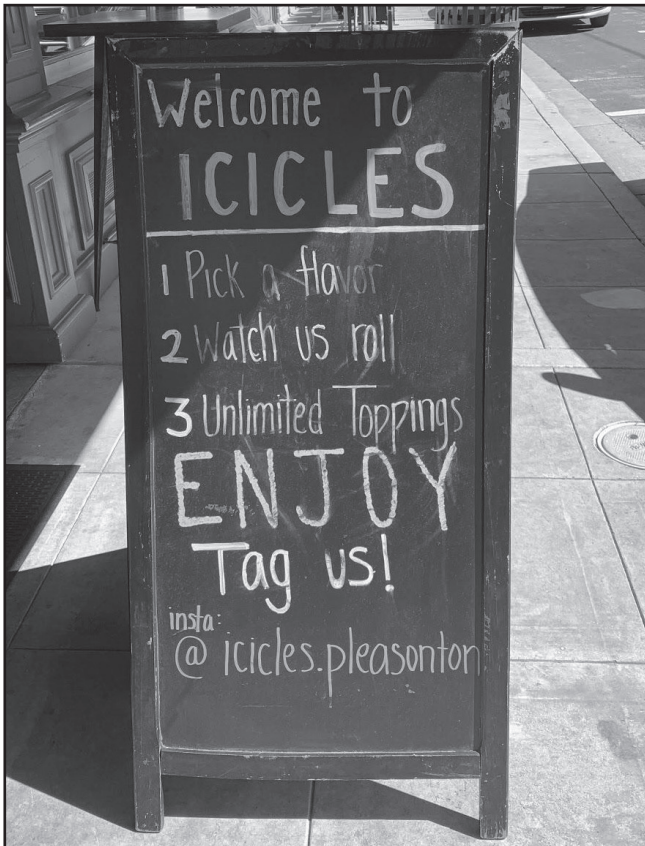 Welcome to
ICICLES
1 Pick a flavor
2 Watch us roll
3 Unlimited Toppings
ENJOY
Tag us!
insta:
@ icicles.pleasonton